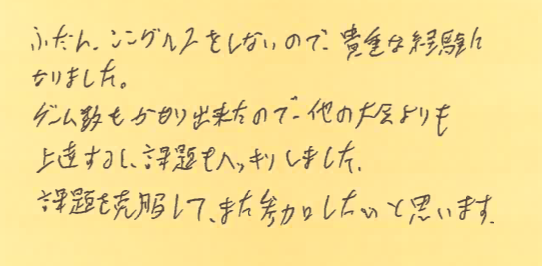 ふだん、シングルスをしないので、貴重な経験に
なりました。
ゲーム数もかなり出来たので、他の大会よりも
上達するし、課題もハッキリしました。
課題を克服して、また参加したいと思います。